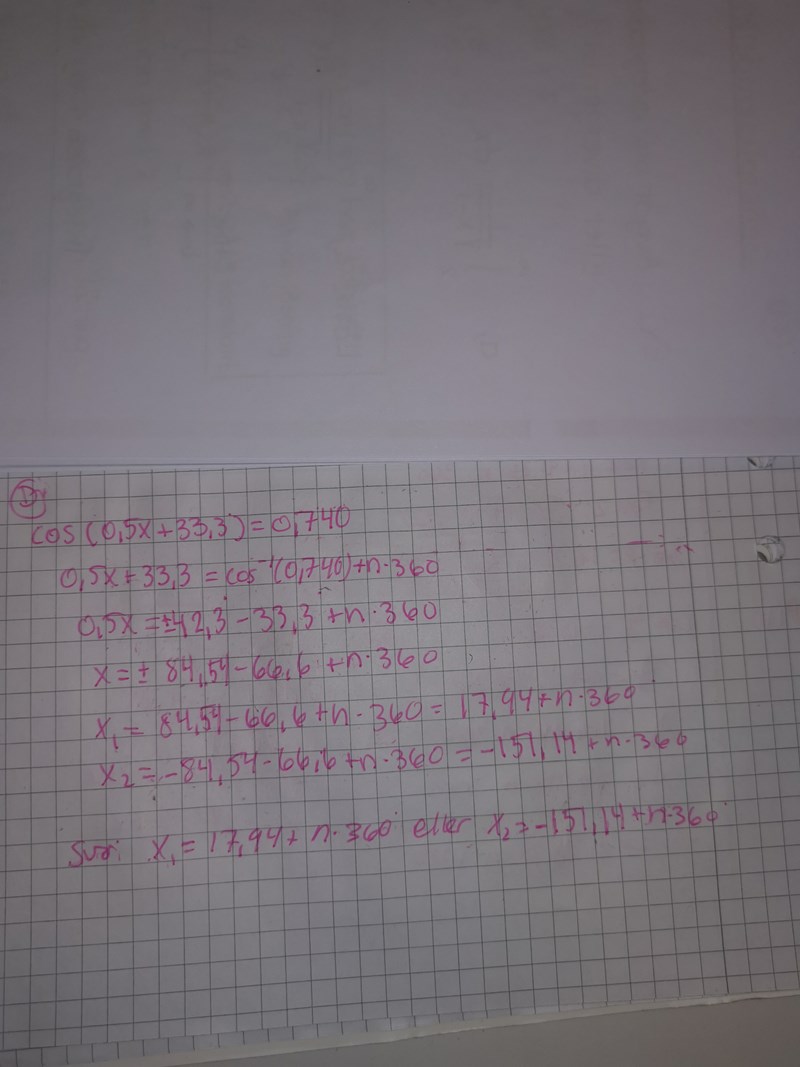 D)
cos (0,5x+33,3)=0,740
0,5x+33,3 = cos⁻¹(0,740)+n·360
0,5x = ±42,3-33,3+n·360
x = ± 84,54-66,6+n·360
x₁ = 84,54-66,6+n·360 = 17,94+n·360
x₂ = -84,54-66,6+n·360 = -151,14+n·360
Svar: x₁ = 17,94+n·360 eller x₂ = -151,14+n·360